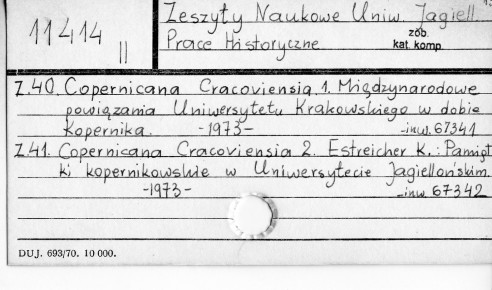 11414
II
Zeszyty Naukowe Uniw. Jagiell.
Prace Historyczne
zob.
kat. komp.
Z.40. Copernicana Cracoviensia 1. Międzynarodowe
powiązania Uniwersytetu Krakowskiego w dobie
Kopernika. -1973- -inw. 67341
Z.41. Copernicana Cracoviensia 2. Estreicher K.: Pamiąt
ki kopernikowskie w Uniwersytecie Jagiellońskim.
-1973- -inw. 67342
DUJ. 693/70. 10 000.